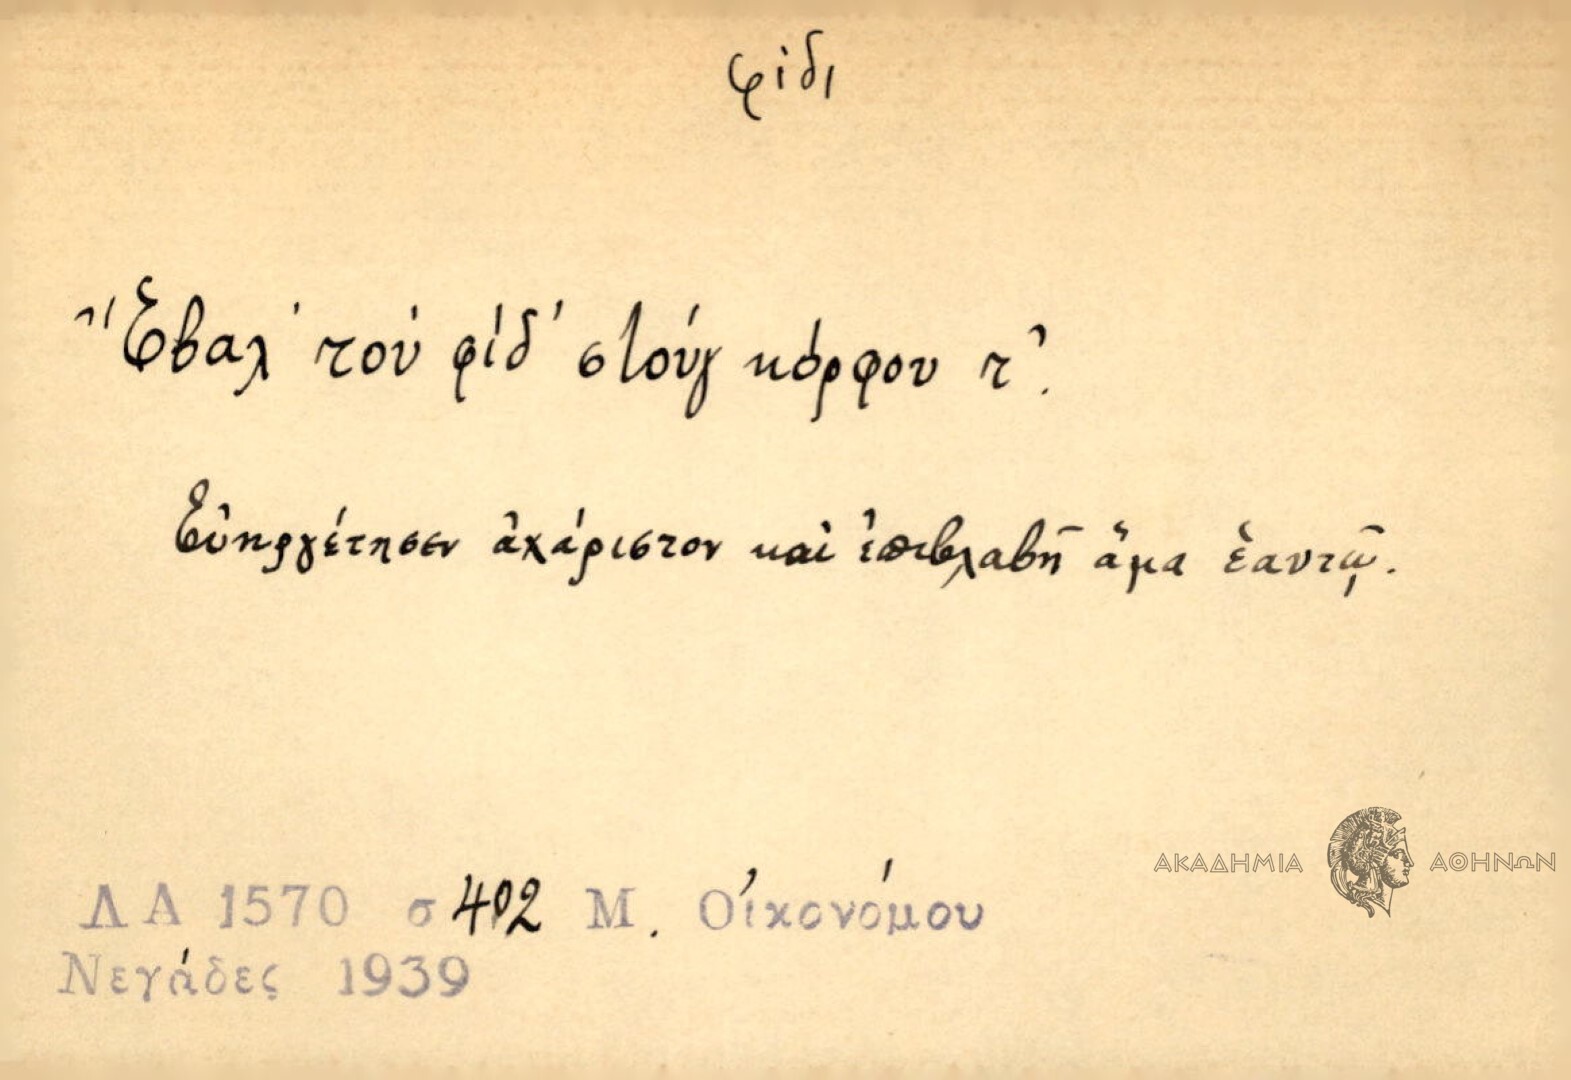 φίδι
Ἔβαλ' τοὺ φίδ' στούγ κόρφου τ'.
Εὐηργέτησεν ἀχάριστον καὶ ἐπιβλαβῆ ἅμα ἑαυτῷ.
ΑΚΑΔΗΜΙΑ ΑΘΗΝΩΝ
ΛΑ 1570 σ 402 Μ. Οἰκονόμου
Νεγάδες 1939